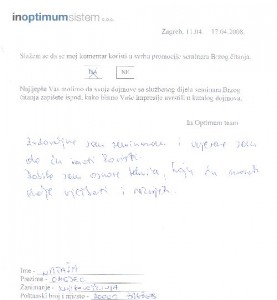 inoptimumsistem d.o.o.
Zagreb, 11.04 17.04.2008.
Slažem se da se moj komentar koristi u svrhu promocije seminara Brzog čitanja.
DA NE
Najljepše Vas molimo da svoje dojmove sa službenog dijela seminara Brzog
čitanja zapišete ispod, kako bismo Vaše impresije uvrstili u katalog dojmova.
In Optimum team
Zadovoljna sam seminarom i vjerujem sam
da će mi koristi.
Dobila sam osnove tehnike, koju ću morati
dalje vježbati i razvijati.
Ime - NATAŠA
Prezime -
Zanimanje -
Poštanski broj i mjesto -